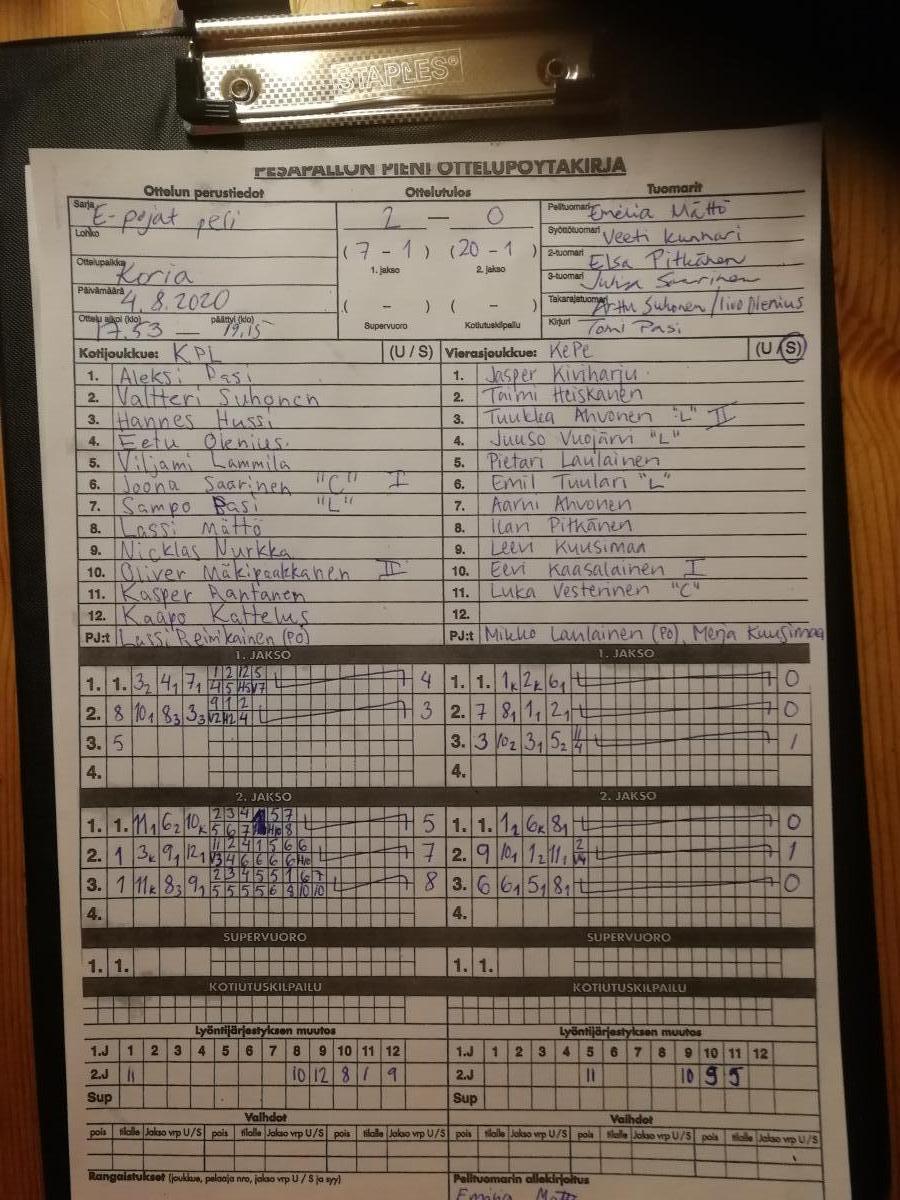 STAPLES®
PESÄPALLON PIENI OTTELUPÖYTÄKIRJA
Ottelun perustiedot Ottelutulos Tuomarit
Sarja E-pojat peli 2 — 0 Pelituomari Emelia Mättö
Lohko Syöttötuomari Veeti Kunnari
(7 - 1) (20 - 1) 2-tuomari Elsa Pitkänen
Ottelupaikka Koria 1. jakso 2. jakso 3-tuomari Juha Saarinen
Päivämäärä 4.8.2020 ( - ) ( - ) Takarajatuomari Arttu Suhonen / Iivo Olenius
Ottelu alkoi (klo) 17.53 — päättyi (klo) 19.15 Supervuoro Kotiutuskilpailu Kirjuri Tomi Pasi
Kotijoukkue: KPL (U / S) Vierasjoukkue: KePe (U / S)
1. Aleksi Pasi 1. Jasper Kiviharju
2. Valtteri Suhonen 2. Taimi Heiskanen
3. Hannes Hussi 3. Tuukka Ahvonen "L" II
4. Eetu Olenius 4. Juuso Vuojärvi "L"
5. Viljami Lammila 5. Pietari Laulainen
6. Joona Saarinen "C" I 6. Emil Tuulari "L"
7. Sampo Pasi "L" 7. Aarni Ahvonen
8. Lassi Mättö 8. Ilari Pitkänen
9. Nicklas Nurkka 9. Leen Kuusimaa
10. Oliver Mäkipaakkanen II 10. Eevi Kaasalainen I
11. Kasper Rantanen 11. Luka Vesterinen "C"
12. Kaapo Kattelus 12.
PJ:t Lassi Reinikainen (PÖ) PJ:t Mikko Laulainen (PÖ), Merja Kuusimaa
1. JAKSO 1. JAKSO
1. 1. 3₂ 4₁ 7₁ 1 2 12 5 4 1. 1. 1ₖ 2ₖ 6₁ 0
4 5 H5 V7
2. 8 10₁ 8₃ 3₃ 9 1 2 3 2. 7 8₁ 1₁ 2₁ 0
V2 H2 4
3. 5 3. 3 10₂ 3₁ 5₂ 11 4 1
4. 4.
2. JAKSO 2. JAKSO
1. 1. 11₁ 6₂ 10ₖ 2 3 4 5 7 5 1. 1. 1₂ 6ₖ 8₁ 0
5 6 7 H10 8
2. 1 3ₖ 9₁ 12₁ 11 2 4 1 5 6 6 7 2. 9 10₁ 1₂ 11₁ 2 V4 1
V3 4 6 6 6 6 H10
3. 1 11ₖ 8₃ 9₁ 2 3 4 5 5 1 6 7 8 3. 6 6₁ 5₁ 8₁ 0
5 5 5 5 6 8 10 10
4. 4.
SUPERVUORO SUPERVUORO
1. 1. 1. 1.
KOTIUTUSKILPAILU KOTIUTUSKILPAILU
Lyöntijärjestyksen muutos Lyöntijärjestyksen muutos
1.J 1 2 3 4 5 6 7 8 9 10 11 12 1.J 1 2 3 4 5 6 7 8 9 10 11 12
2.J 11 10 12 8 1 9 2.J 11 10 9 5
Sup Sup
Vaihdot Vaihdot
pois tilalle Jakso vrp U/S pois tilalle Jakso vrp U/S pois tilalle Jakso vrp U/S pois tilalle Jakso vrp U/S pois tilalle Jakso vrp U/S pois tilalle Jakso vrp U/S
Rangaistukset (joukkue, pelaaja nro, jakso vrp U / S ja syy) Pelituomarin allekirjoitus